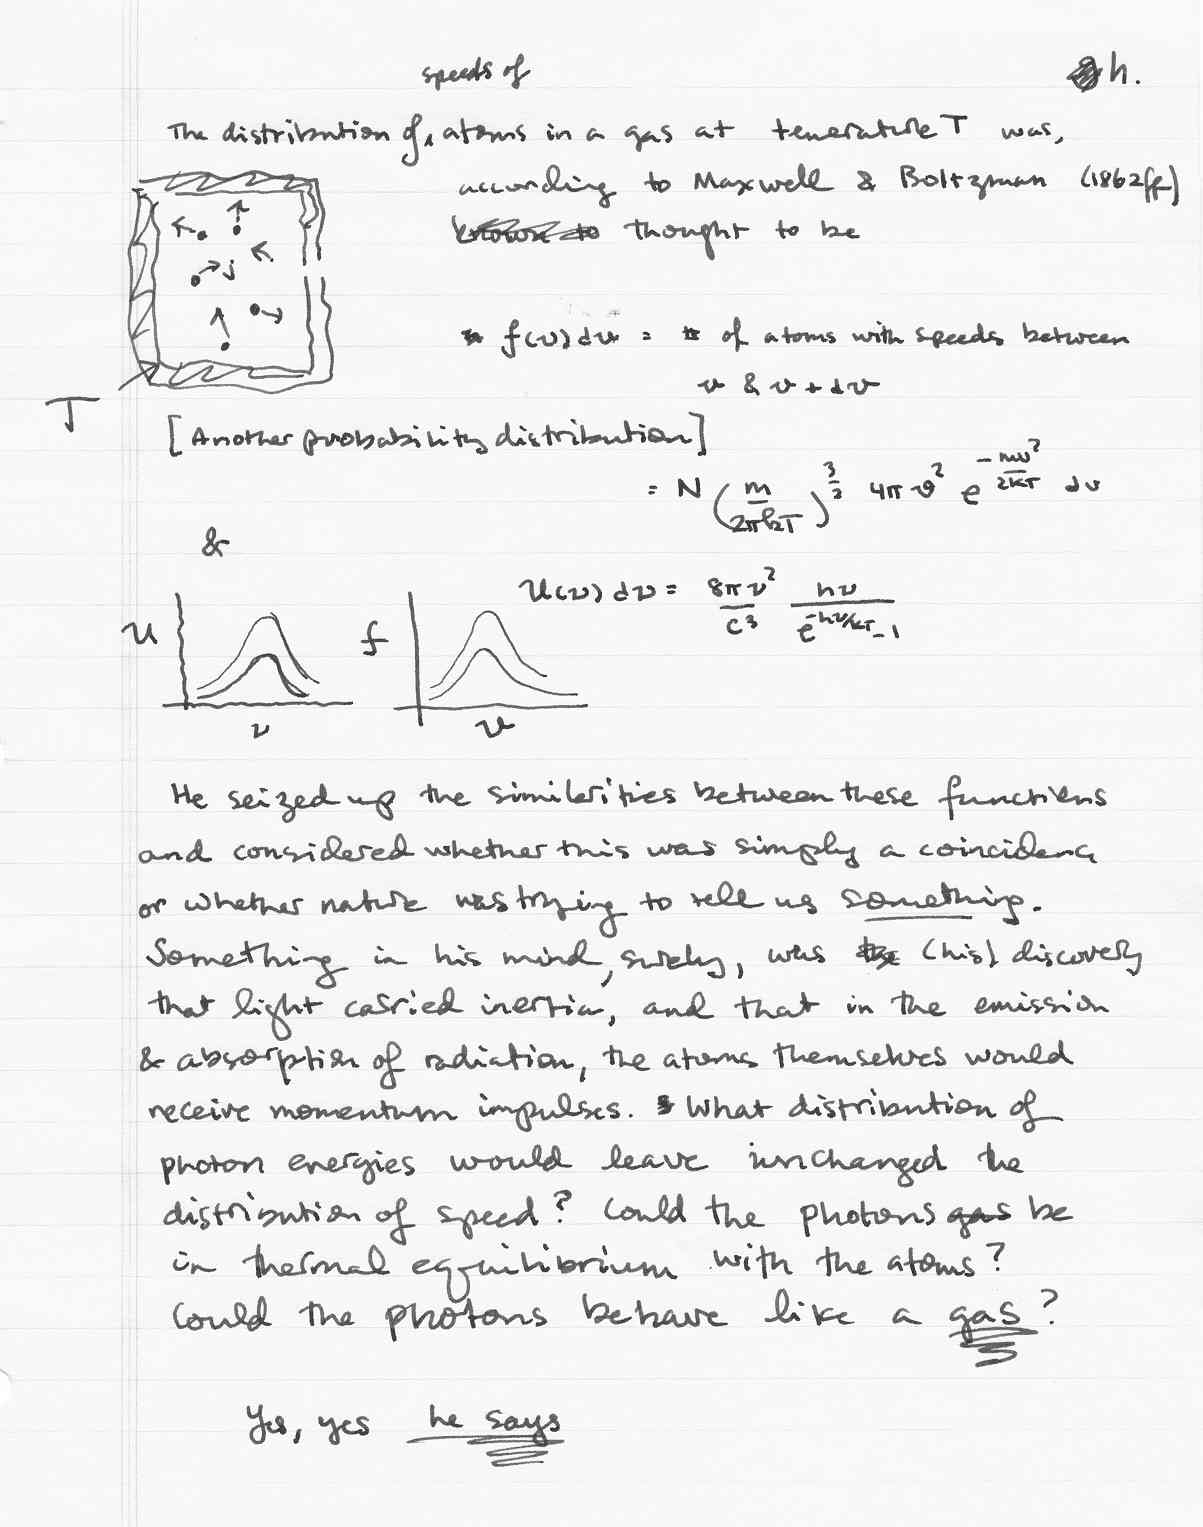 h.
speeds of
The distribution of atoms in a gas at temerature T was,
according to Maxwell & Boltzman (1862ff)
known to thought to be
f(v) dv = # of atoms with speeds between
v & v + dv
T
[Another probability distribution]
= N (m/2πkT)^3/2 4πv² e^-mv²/2kT dv
&
U(ν) dν = 8πν²/c³ hν/e^-hν/kT-1
U
f
ν
v
He seized up the similarities between these functions
and considered whether this was simply a coincidence
or whether nature was trying to tell us something.
Something in his mind, surely, was the (his) discovery
that light carried inertia, and that in the emission
& absorption of radiation, the atoms themselves would
receive momentum impulses. What distribution of
photon energies would leave unchanged the
distribution of speed? Could the photons gas be
in thermal equilibrium with the atoms?
Could the photons behave like a gas?
Yes, yes he says